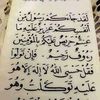 لَقَدْ جَاءَكُمْ رَسُولٌ مِنْ
أَنْفُسِكُمْ عَزِيزٌ عَلَيْهِ مَا
عَنِتُّمْ حَرِيصٌ عَلَيْكُمْ بِالْمُؤْمِنِينَ
رَؤُوفٌ رَحِيمٌ فَإِنْ تَوَلَّوْا
فَقُلْ حَسْبِيَ اللَّهُ لَا إِلَهَ إِلَّا هُوَ
عَلَيْهِ تَوَكَّلْتُ وَهُوَ